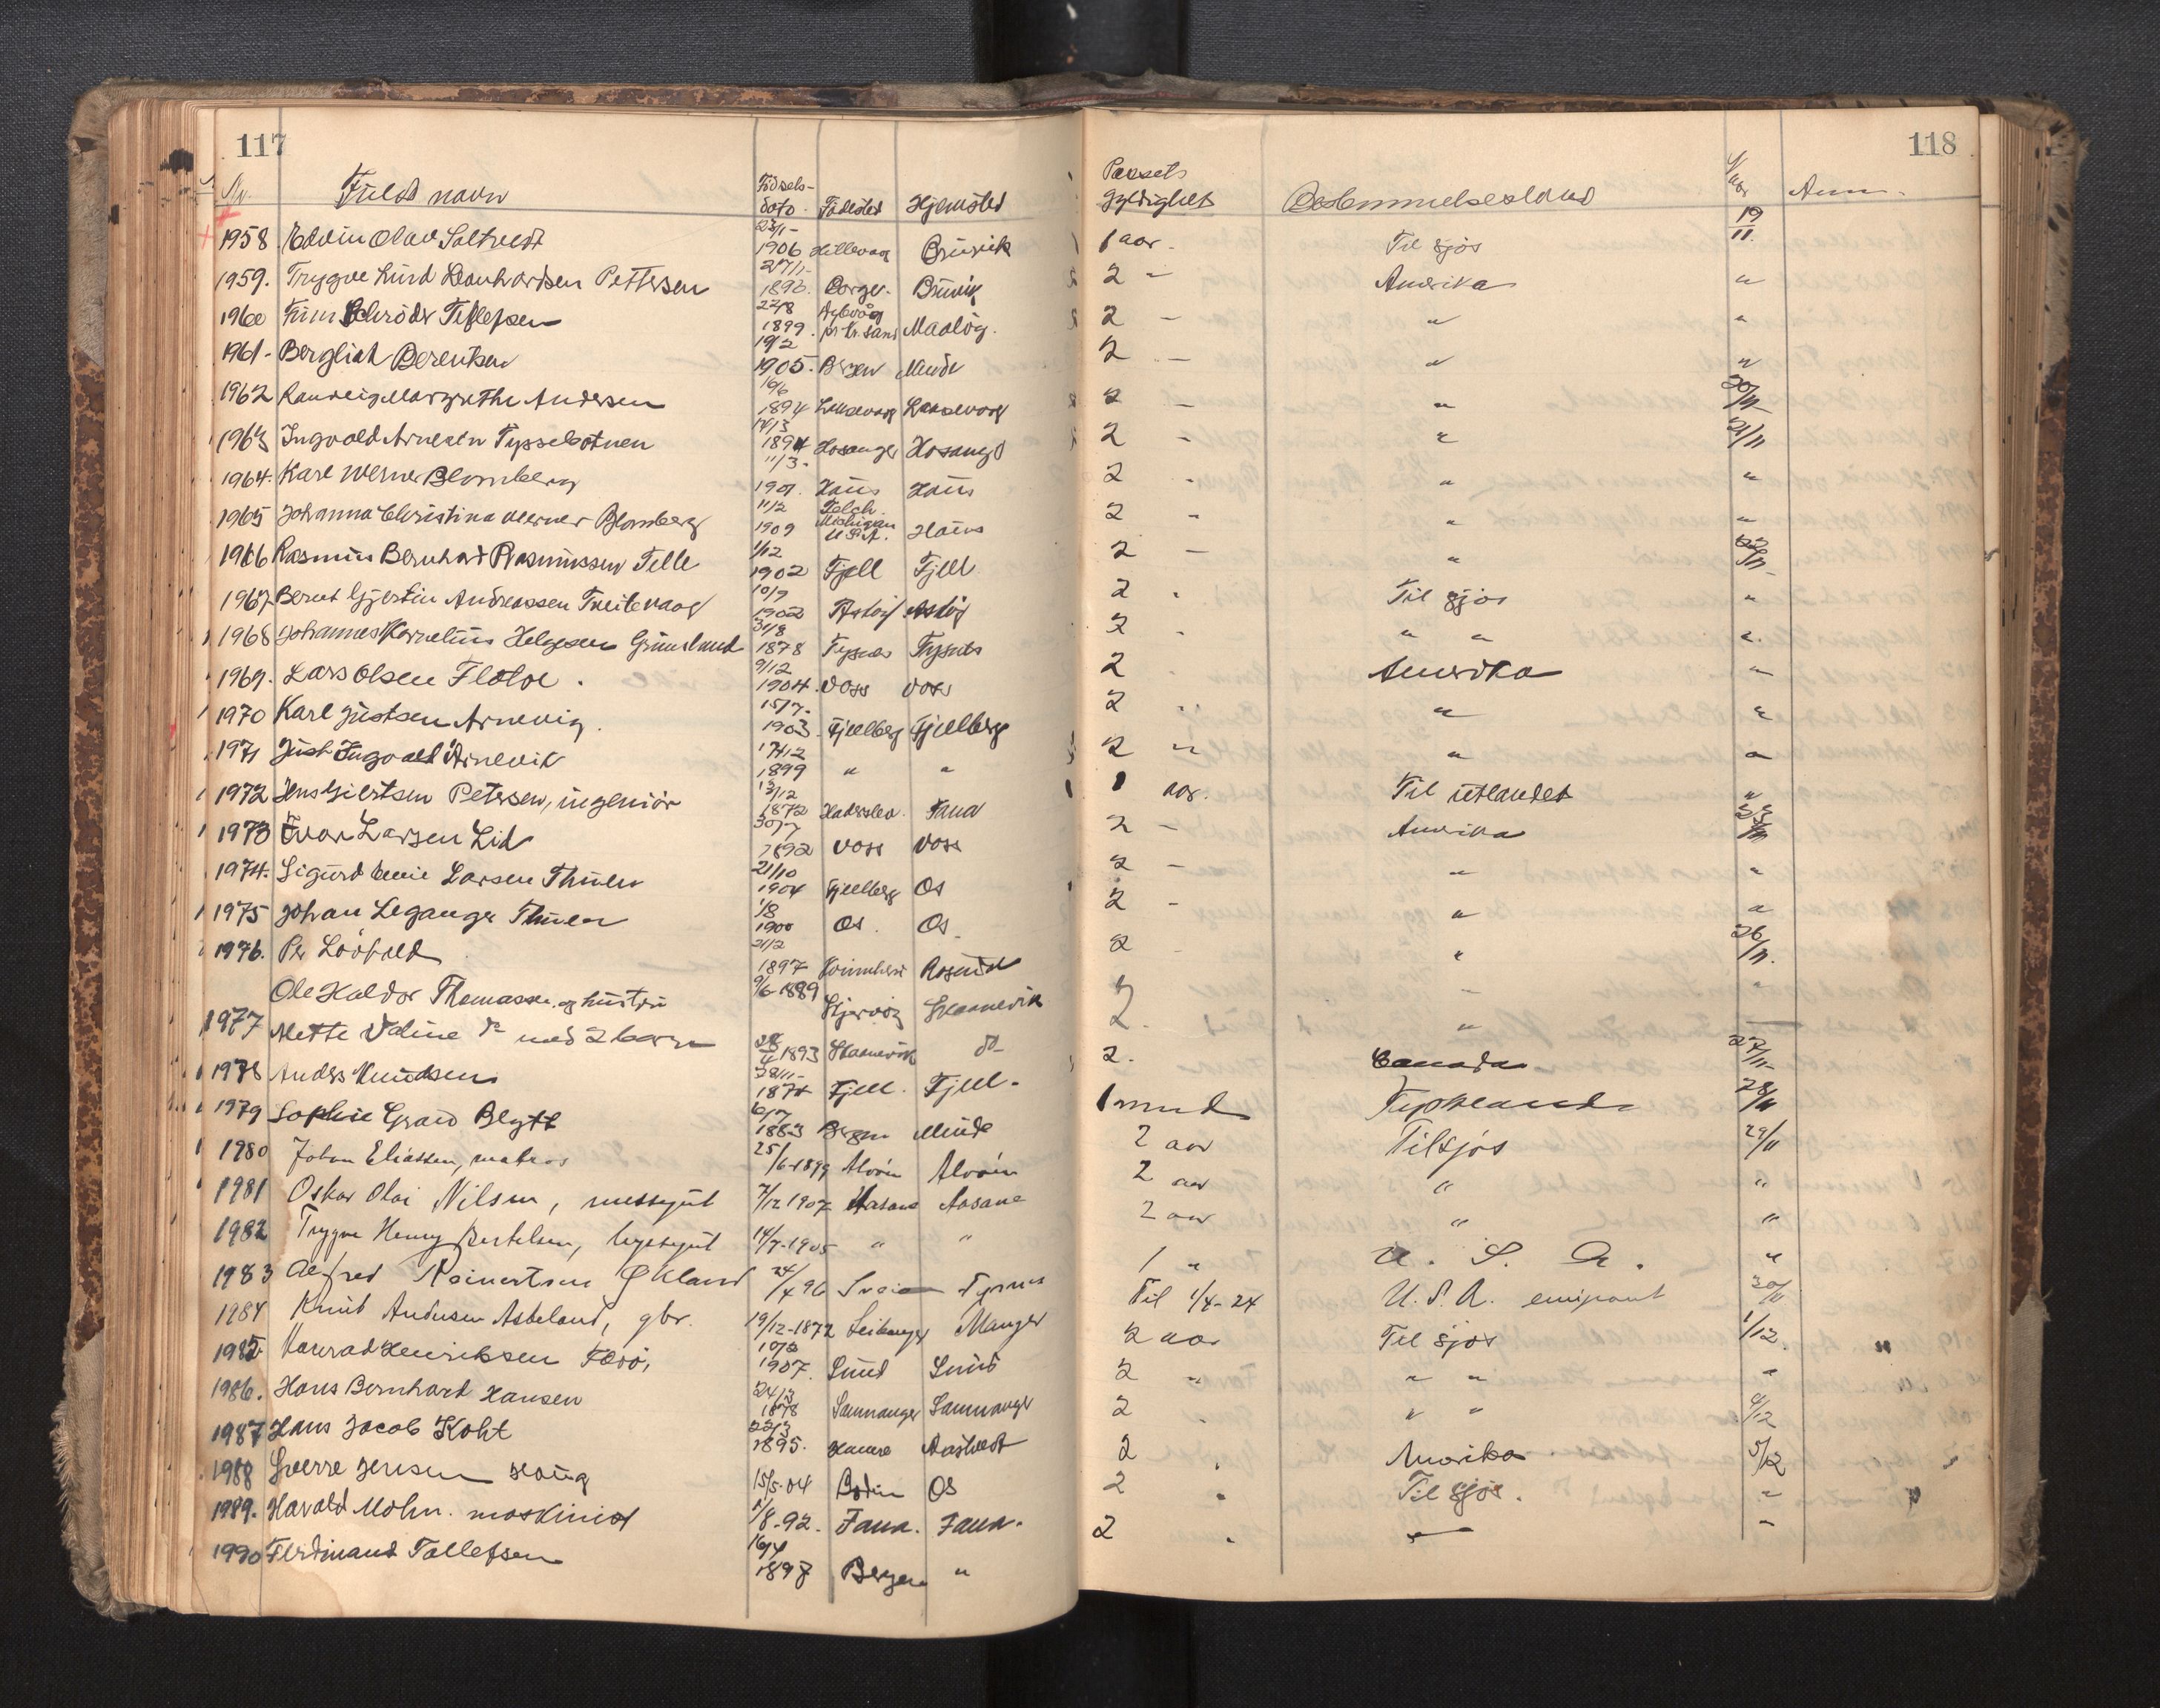 117
118
Nr. Fulde navn Födsels- dato. Födested Hjemsted Passets Gyldighet Bestemmelsesland Anm.
1958 Edvin Olav Saltvedt 23/1- 1906 Hillevaag Bruvik 1 aar. Til sjös 19/11
1959. Trygve Lund Leonhardsen Pettersen 27/1- Bruvik 2 - Amerika "
1960 Finn Schröder Tellefsen 27/8 1899. Maalög. 2 - " "
1961- Bergliot Berentsen 19/2 1905. Bergen Minde 2 - " "
1962 Rannveig Margrethe Andersen 16/6 1894 Laksevaag Laksevaag 2 - " 20/11
1963 Ingvald Arnesen Tyssebotnen 14/3 1894 Hosanger Hosanger 2 - " 21/11
1964. Karl Werner Blomberg 11/3. 1901. Haus Haus 2 " "
1965 Johanna Christina Werner Blomberg 11/2 1909 Felch Michigan U.S.A. Haus 2 " " "
1966 Rasmus Bernhard Rasmussen Telle 1/12 1902 Fjell Fjell 2 - " 22/11
1967 Bernt Gjertin Andreassen Tveitevaag 10/9 1902 Asköy Asköy 2 " Til sjös "
1968 Johannes Kornelius Helgesen Grimsland 31/8 1878 Tysnes Tysnes 2 " " " "
1969. Lars Olsen Flatve. 9/12 1904. Voss Voss 2 Amerika "
1970 Karl Justsen Arnevig. 15/7. 1903. Fjelberg Fjellberg 2 " " "
1971 Just Ingvald Arnevik 17/12 1899 " " 2 " " "
1972 Jens Giertsen Petersen, ingeniör 13/12 1872 Haderslev. Fana 1 aar. Til utlandet "
1973 Ivar Larsen Lid 30/7 1892 Voss Voss 2 - Amerika 23/11
1974. Sigurd Larsen Thuen 21/10 1904 Fjellberg Os 2 - " "
1975 Johan Leganger Thuen 1/8 1900 Os. Os. 2 - " "
1976. Per Lööfald 21/2 1897 Kvinnherr Rosendal 2 - " 26/11.
Ole Haldor Thomassen og hustru 9/6-1889 Skjervöy Skaanevik 2 " "
1977 Mette Valine do med 2 barn 28/4 1893 Skaanevik do 2. "
1978 Anders Knudsen 28/11- 1874 Fjell. Fjell. 2. Canada 27/11-
1979 Sophie Grand Blytt 6/7 1883 Bergen Minde 1 mnd Tyskland 28/11
1980 Johan Eliassen, matros 25/6-1899 Alvöen Alvöen 2 aar Til sjös 29/11
1981 Oskar Olai Nilsen, messegut 7/12 1907 Aasane Aasane 2 aar " "
1982 Trygve Henry Bertelsen, byssegut 14/7-1905 " " 2 aar " "
1983 Alfred Reinertsen Økland 24/4 96 Sveio Tysnes 1 " U. S. A. "
1984 Knut Andersen Askeland, gbr. 19/12-1872 Leikanger Manger Til 1/4-24 U.S.A. emigrant 30/11
1985 Konrad Henriksen Toröi, 10/2 1907. Sund Sund 2 aar Til sjös 1/12
1986. Hans Bernhard Hansen 24/3 1878 Samnanger Samnanger 2 " " " "
1987 Hans Jacob Koht 22/3 1895. Hamre Aastvedt 2 " " " 4/12
1988 Sverre Jensen Haug 15/5-04 Bodin Os 2 " Amerika 5/12
1989. Harald Mohn. maskinist 1/8-92. Fana. Fana. 2 " Til sjös. "
1990 Ferdinand Tollefsen 16/4 1898 Bergen " 2 " - "